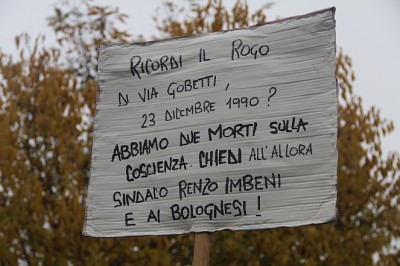 RICORDI IL ROGO
DI VIA GOBETTI,
23 DICEMBRE 1990?
ABBIAMO DUE MORTI SULLA
COSCIENZA. CHIEDI ALL'ALLORA
SINDACO RENZO IMBENI
E AI BOLOGNESI!